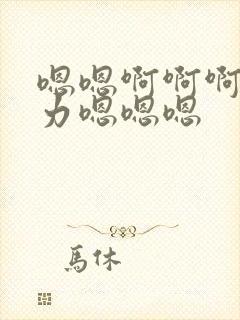 嗯嗯啊啊啊
力嗯嗯嗯
馬休